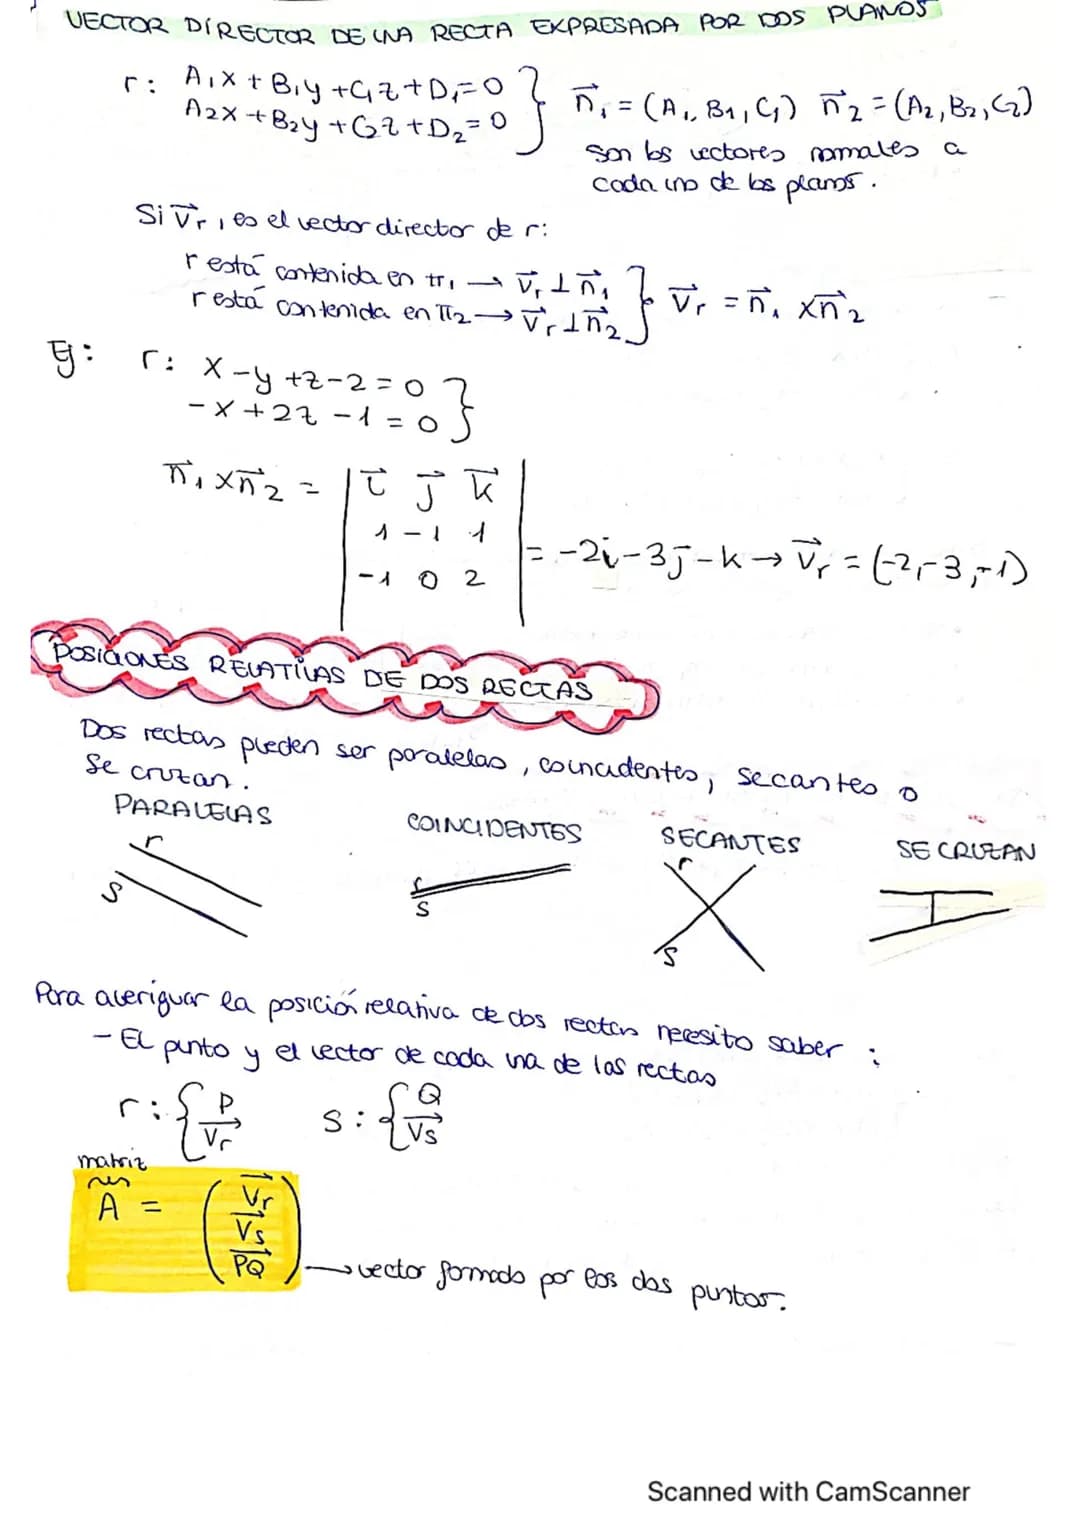 VECTOR DIRECTOR DE UNA RECTA EXPRESADA POR DOS PLANOS
r: A₁x + B₁y + C₁z + D₁ = 0 } n⃗₁ = (A₁, B₁, C₁) n⃗₂ = (A₂, B₂, C₂)
A₂x + B₂y + C₂z + D₂ = 0
son los vectores normales a
cada uno de los planos.
Si v⃗r, es el vector director de r:
r está contenida en π₁ → v⃗r ⊥ n⃗₁ } v⃗r = n⃗₁ x n⃗₂
r está contenida en π₂ → v⃗r ⊥ n⃗₂
Ej: r: x - y + z - 2 = 0 }
- x + 2z - 1 = 0
n⃗₁ x n⃗₂ = | i⃗ j⃗ k⃗ |
1 -1 1
-1 0 2 = -2i - 3j - k → v⃗r = (-2, -3, -1)
POSICIONES RELATIVAS DE DOS RECTAS
Dos rectas pueden ser paralelas, coincidentes, secantes o
se cruzan.
PARALELAS COINCIDENTES SECANTES SE CRUZAN
r r r
s s s
Para averiguar la posición relativa de dos rectas necesito saber :
- El punto y el vector de cada una de las rectas
r: { P s: { Q
v⃗r v⃗s
matriz
A = ( v⃗r
v⃗s
PQ⃗ ) → vector formado por los dos puntos.
Scanned with CamScanner